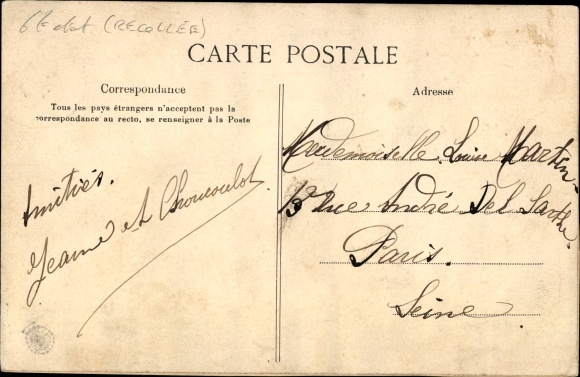 (RECOLLÉE)
CARTE POSTALE
Correspondance
Tous les pays étrangers n'acceptent pas la
correspondance au recto, se renseigner à la Poste
Amitiés.
Jeanne et
Adresse
Mademoiselle Louise Martin
Rue André Del Sarthe
Paris.
Seine